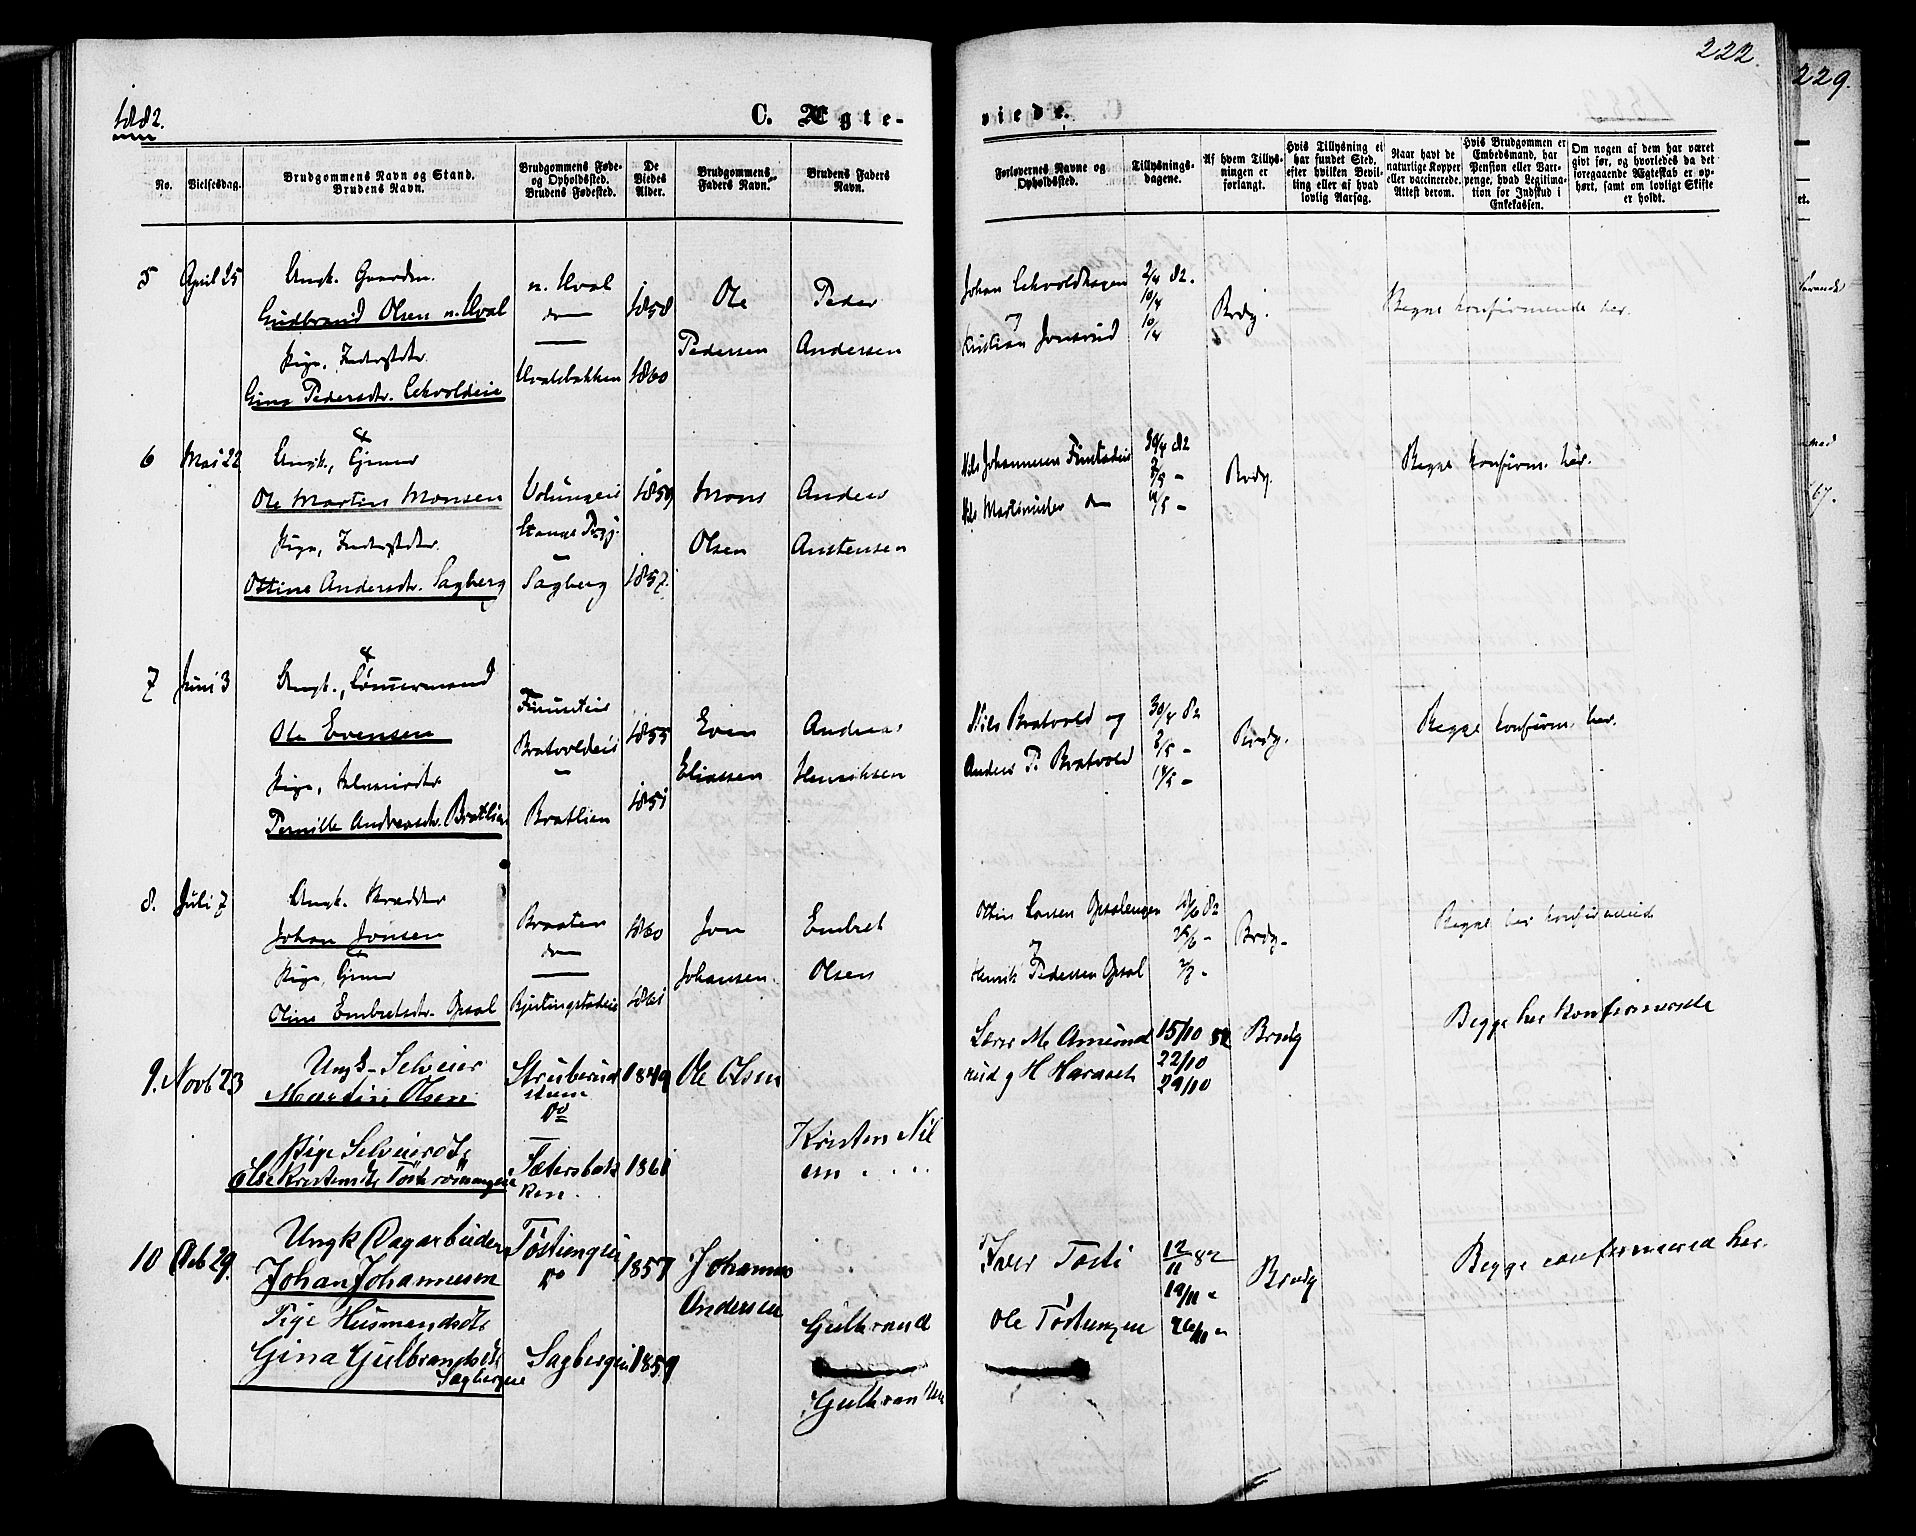 222.
229.
1882.
C. Ægte-
viede.
No.
Vielsesdag.
Brudgommens Navn og Stand.
Brudens Navn.
Brudgommens Føde-
og Opholdssted.
Brudens Fødested.
De
Viedes
Alder.
Brudgommens
Faders Navn.
Brudens Faders
Navn.
Forlovernes Navne og
Opholdssted.
Tillysnings-
dagene.
Af hvem Tillys-
ningen er
forlangt.
Hvis Tillysning ei
har fundet Sted,
efter hvilken Bevil-
ling eller af hvad
lovlig Aarsag.
Naar havt de
naturlige Kopper
eller vaccinerede.
Attest derom.
Hvis Brudgommen er
Embedsmand, har
Pension eller Vart-
penge, hvad Legitima-
tion for Indskud i
Enkekassen.
Om nogen af dem har været
givt før, og hvorledes da det
foregaaende Ægteskab er op-
hørt, samt om lovligt Skifte
er holdt.
5 April 25 Ungk. Gaardm.
Gudbrand Olsen n. Hval
Pige, Inderstdtr.
Gina Pedersdtr. Ekvoldeie
n. Hval
do
Hvalsbakken
1858
1860
Ole
Pedersen
Peder
Andersen
Johan Ekvoldhagen
og
Kristian Jonsrud
2/4 82.
10/4
10/4
Brdg.
Begge konfirmerede her.
6 Mai 22 Ungk., Gjmer
Ole Martin Monsen
Pige, Inderstdtr.
Ottine Andersdtr. Sagberg
Volungeie
Stange Prgj.
Sagberg
1859
1857.
Mons
Olsen
Anders
Anstensen
Nils Johannesen Finstadeie
Nils Martinusen do
30/4 82
7/5 -
14/5 -
Brdg.
Begge konfirm. her.
7 Juni 3 Ungk., Tømmermand
Ole Evensen
Pige,
Pernille Andreasdtr. Bratlien
Bratvoldeie
Bratlien
1855
1851
Even
Eliassen
Andreas
Henriksen
Nils Bratvold og
Anders P. Bratvold
30/4 82
7/5 -
14/5 -
Brdg.
Begge konfirm. her.
8. Juli 7 Ungk. Skrædder
Johan Jonsen
Pige, Gjmer
Oline Embretsdtr. Opsal
Braaten
do
Bjertingstadeie
1860
1861
Jon
Johansen.
Embret
Olsen
Ottin Larsen Opsalengen
og
Henrik Pedersen Opsal
/6 82
25/6 -
2/7 -
Brdg.
Begge her konfirmerede
9. Novb 23 Ungk Selveier
Martin Olsen
Pige Selveierdt
Else Kristensdt
Struberud
Stem
Do
Sætersbak
ken.
1849
1861
Ole Olsen
Kristen Nil
sen
Lærer M. Amund
rud og H Haraset
15/10 82
22/10
29/10
Brudg
Begge her konfirmerede
10 Deb 29. Ungk Dagarbeider
Johan Johannesen
Pige Husmandsdt
Gina Gulbrandsdt
Sagbergeie
Tøstiengeie
Do
Sagbergeie
1857
1859
Johannes
Andersen
Gulbrand
Gulbransen
Iver Tosti
Ole Tøstiengen
12/11 82
19/11 "
26/11 "
Brudg
Begge confirmered her.